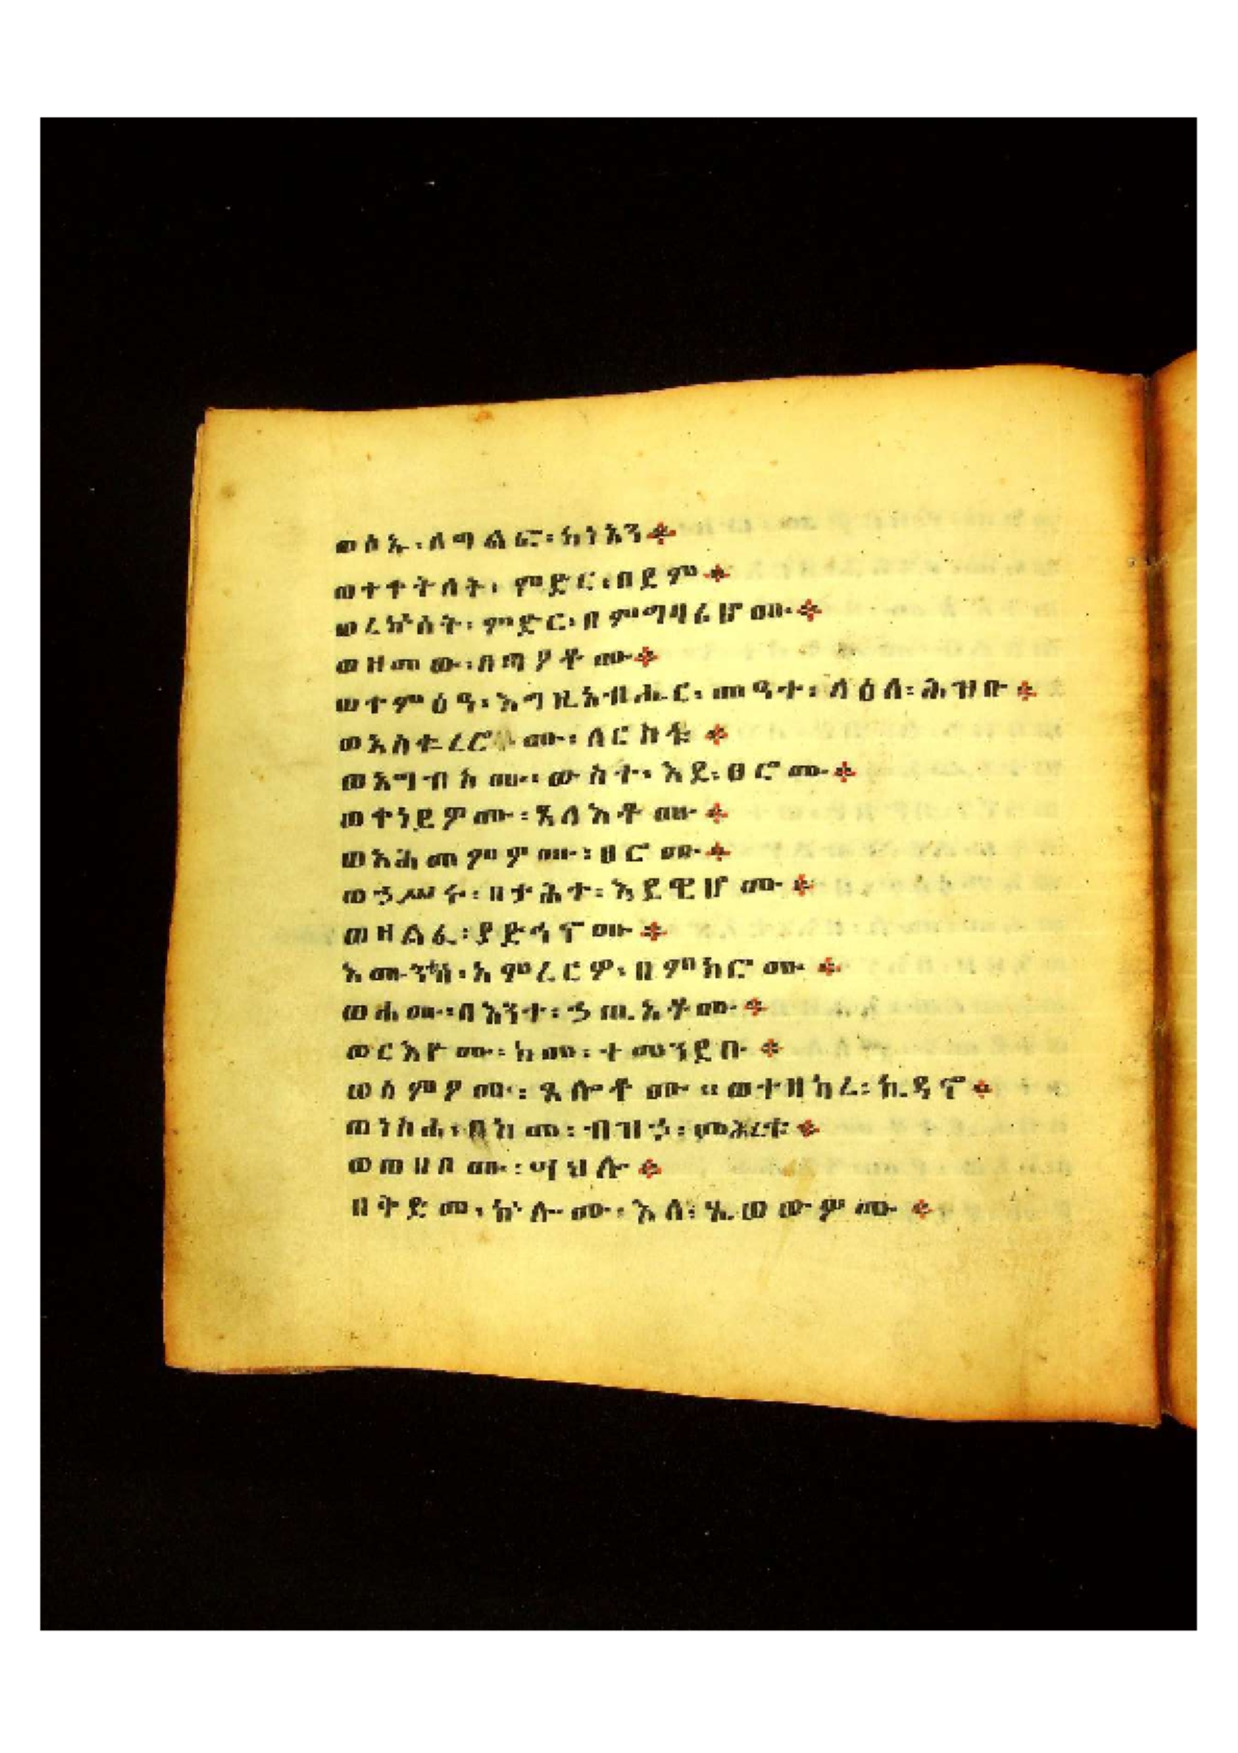 ወሶኡ፡ለግልፎ፡ከነአን፨
ወተቀትለት፡ምድር፡በደም፨
ወረኵሰት፡ምድር፡በምግባሪሆሙ፨
ወዘመው፡በጣዖቶሙ፨
ወተምዕዓ፡እግዚአብሔር፡መዓተ፡ላዕለ፡ሕዝቡ፨
ወአስቆረሮሙ፡ለርስቱ፨
ወአግብኦሙ፡ውስተ፡እደ፡ፀሮሙ፨
ወቀነይዎሙ፡ጸላእቶሙ፨
ወአሕመምዎሙ፡ፀሮሙ፨
ወኃሥሩ፡በታሕተ፡እደዊሆሙ፨
ወዘልፈ፡ያድኅኖሙ፨
እሙንቱሰ፡አምረርዎ፡በምክሮሙ፨
ወሐሙ፡በእንተ፡ኃጢአቶሙ፨
ወርእዮሙ፡ከመ፡ተመንደቡ፨
ወሰምዖሙ፡ጸሎቶሙ።ወተዘከረ፡ኪዳኖ፨
ወነስሐ፡በከመ፡ብዝኃ፡ምሕረቱ፨
ወወሀቦሙ፡ሣህሎ፨
በቅድመ፡ኵሎሙ፡እለ፡ፄወውዎሙ፨